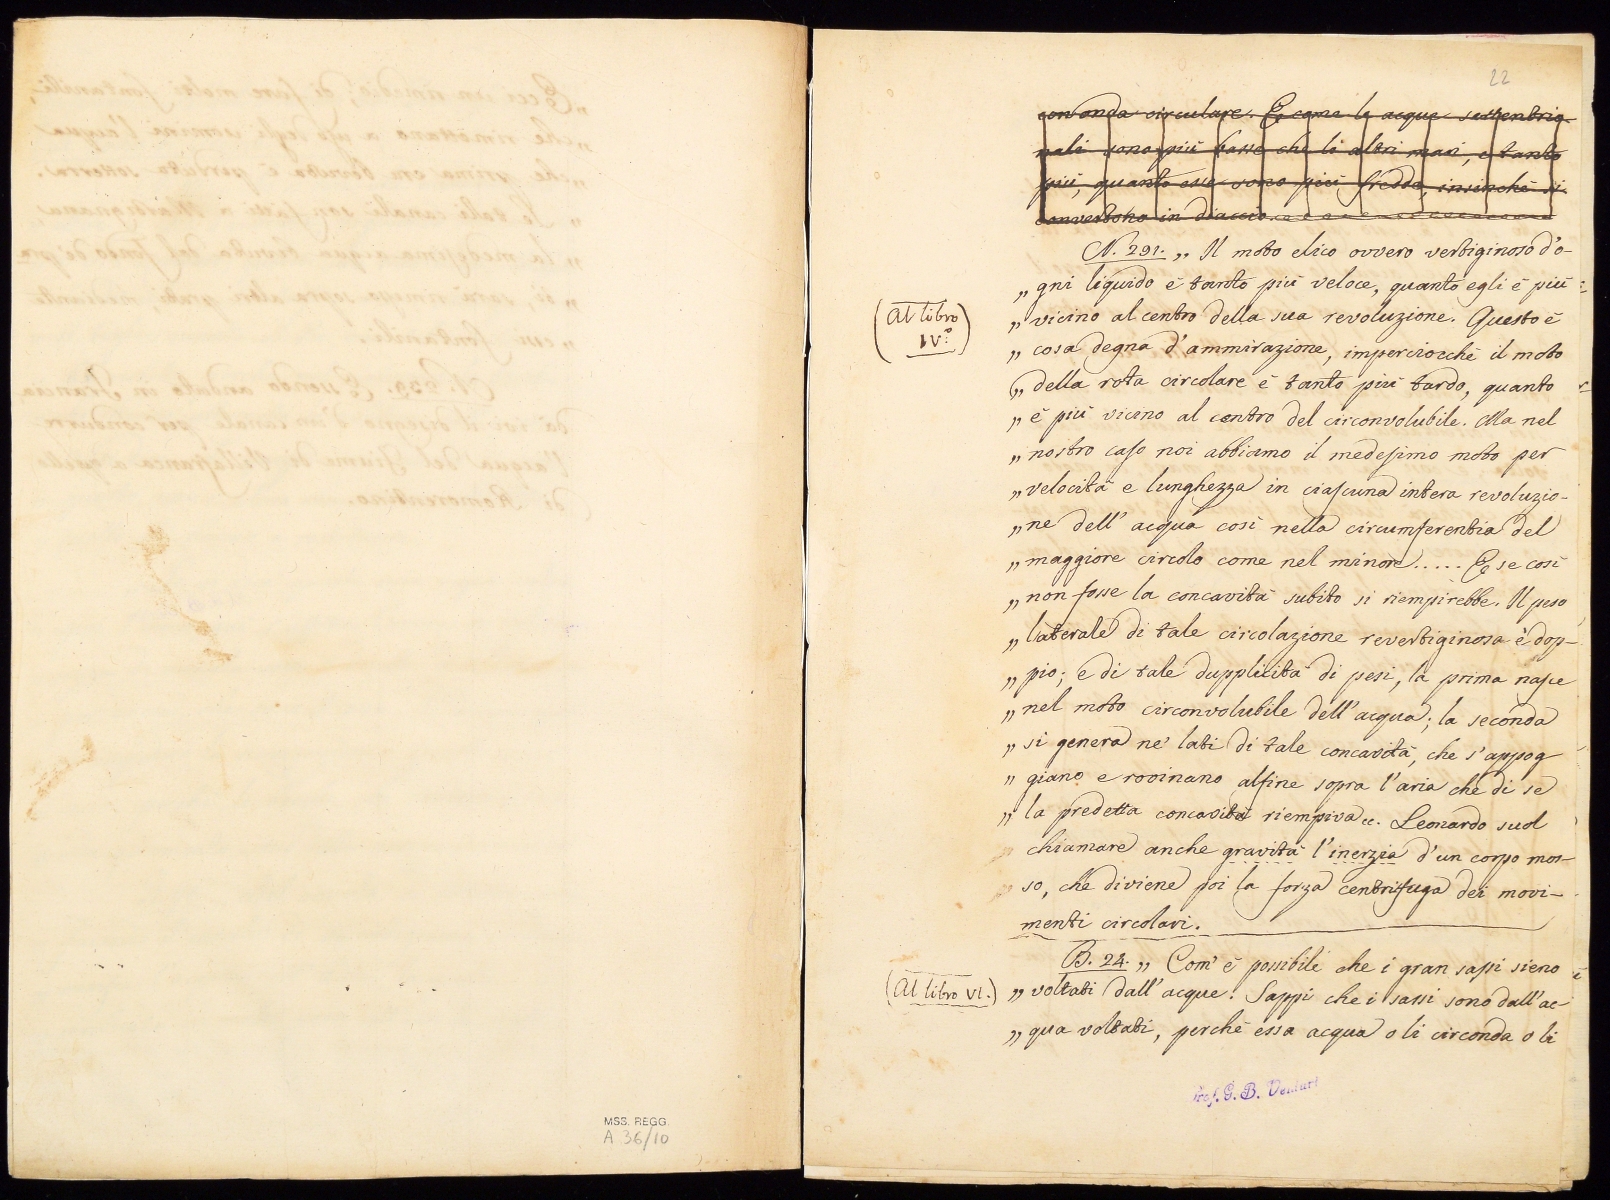 MSS. REGG.
A 36/10
22
con onda circulare. E come le acque settentrio-
nali sono più basse che li altri mari, e tanto
più, quanto esse sono più fredde, insinchè si
convertono in diaccio.
N. 291. „ Il moto elico ovvero vertiginoso d'o-
„ gni liquido è tanto più veloce, quanto egli è più
(al libro
IV.º)
„ vicino al centro della sua revoluzione. Questo è
„ cosa degna d'ammirazione, imperciocchè il moto
„ della rota circolare è tanto più tardo, quanto
„ è più vicino al centro del circonvolubile. Ma nel
„ nostro caso noi abbiamo il medesimo moto per
„ velocità e lunghezza in ciascuna intera revoluzio-
„ ne dell' acqua così nella circumferentia del
„ maggiore circolo come nel minore ..... E se così
„ non fosse la concavità subito si riempirebbe. Il peso
„ laterale di tale circolazione revertiginosa è dop-
„ pio; e di tale dupplicità di pesi, la prima nasce
„ nel moto circonvolubile dell'acqua; la seconda
„ si genera ne' lati di tale concavità, che s'appog
„ giano e rovinano alfine sopra l'aria che di se
„ la predetta concavità riempiva ec. Leonardo suol
chiamare anche gravità l'inerzia d'un corpo mos-
so, che diviene poi la forza centrifuga dei movi-
menti circolari.
B. 24. „ Com' è possibile che i gran sassi sieno
(al libro VI.)
„ voltati dall'acque? Sappi che i sassi sono dall'ac
„ qua voltati, perchè essa acqua o li circonda o li
Prof. G. B. Venturi